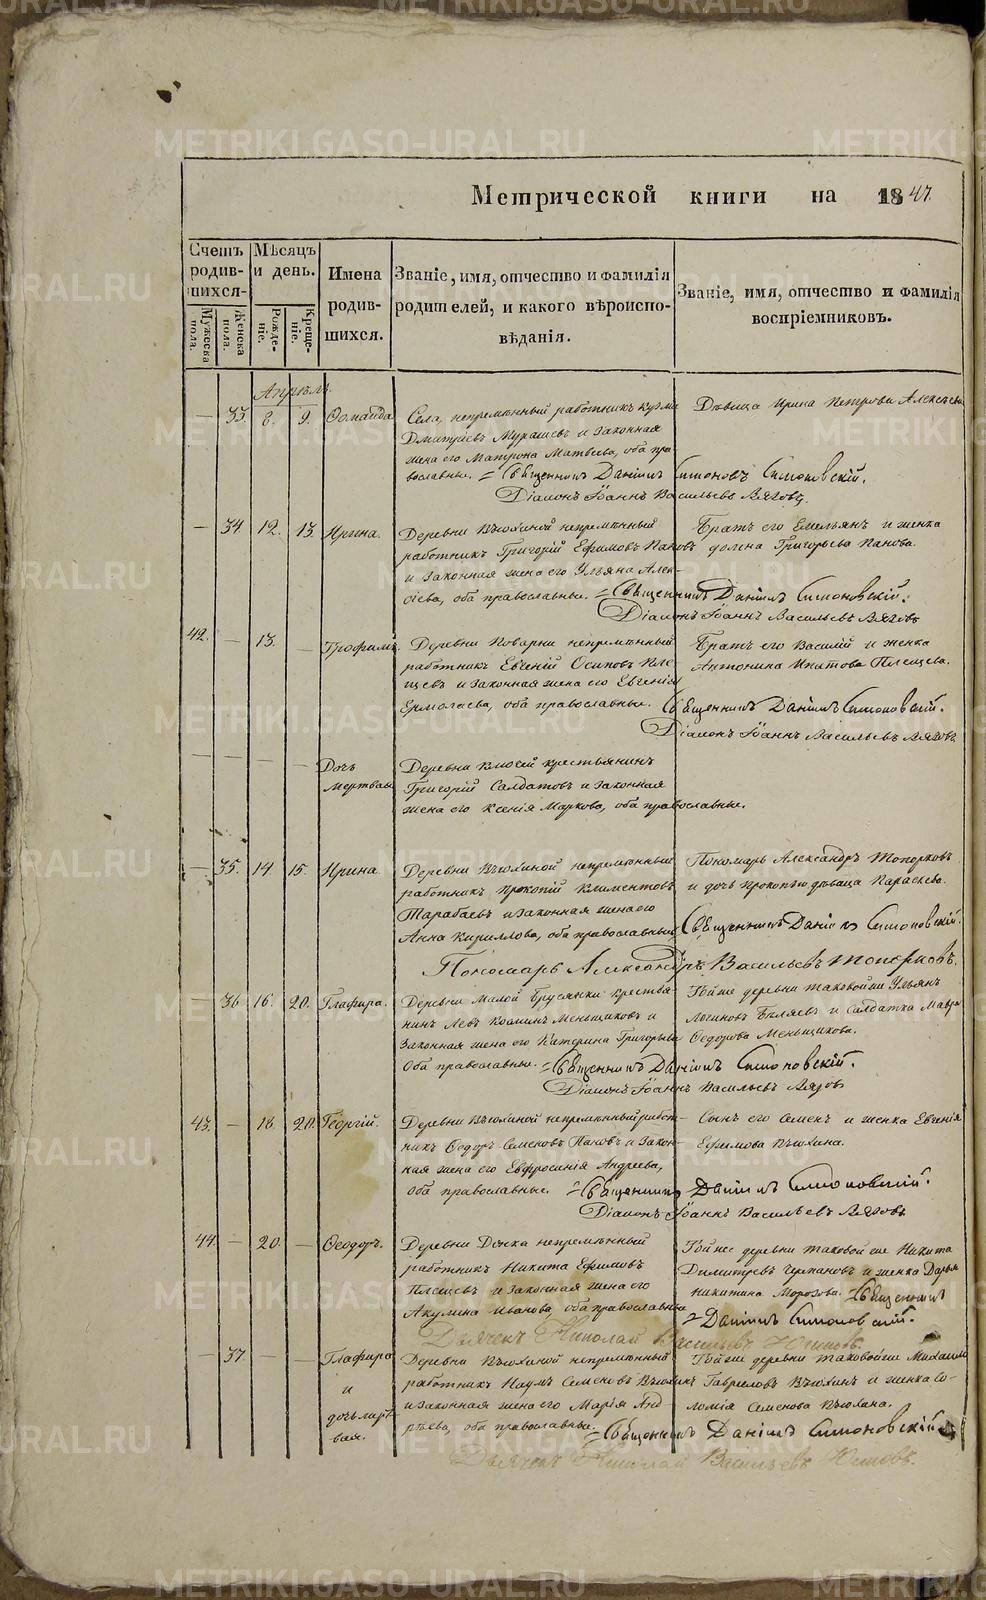 METRIKI.GASO-URAL.RU
Метрической книги на 1847.
Счетъ родив-шихся.
Мужеска пола.
Женска пола.
Мѣсяцъ и день.
Рожде-ніе.
Креще-ніе.
Имена родив-шихся.
Званіе, имя, отчество и фамилія родителей, и какого вѣроиспо-вѣданія.
Званіе, имя, отчество и фамилія воспріемниковъ.
Апрѣль.
— 33. 8. 9. Ѳомаида
Села, непремѣнный работникъ Кузма
Дмитріевъ Мурашевъ и законная
жена его Матрона Матвеева, оба пра-
вославные. = Священникъ Даніилъ Симоновъ Симоновскій.
Діаконъ Іоаннъ Васильевъ
Дѣвица Ирина Петрова
— 34. 12. 13. Ирина.
Деревни Вьюхиной непремѣнный
работникъ Григорій Ефимовъ Пановъ
и законная жена его Ульяна Алек-
сіева, оба православные. = Священникъ Даніилъ Симоновскій.
Діаконъ Іоаннъ Васильевъ
Братъ его Емельянъ и женка
Григорьева Панова.
42. — 13. — Трофимъ.
Деревни Поварни непремѣнный
работникъ Евгеній Осиповъ Пле-
щевъ и законная жена его Евгенія
Ермолаева, оба православные. Священникъ Даніилъ Симоновскій.
Діаконъ Іоаннъ Васильевъ
Братъ его Василій и женка
Антонина Ипатова Плещева.
— — — — Дочь мертвая
Деревни Ключей крестьянинъ
Григорій Салдатовъ и законная
жена его Ксенія Маркова, оба православные.
— 35. 14. 15. Ирина.
Деревни Вьюхиной непремѣнный
работникъ Прокопій Климентовъ
Тарабаевъ и законная жена его
Анна Кириллова, оба православные, Священникъ Даніилъ Симоновскій.
Пономарь Александръ Васильевъ Топорковъ.
Пономарь Александръ Топорковъ
и дочь Прокопью дѣвица Параскева.
— 36. 16. 20. Глафира.
Деревни Малой Брусянки крестья-
нинъ Левъ Козминъ Меньщиковъ и
законная жена его Катерина Григорьева
Оба православные. = Священникъ Даніилъ Симоновскій.
Діаконъ Іоаннъ Васильевъ
Той же деревни таковой же Ульянъ
Логиновъ Бѣляевъ и Салдатка Мавра
Ѳедорова Меньщикова.
43. — 18. 20. Георгій.
Деревни Вьюхиной непремѣнный работ-
никъ Ѳедоръ Семеновъ Пановъ и закон-
ная жена его Евфросинія Андреева,
оба православные. = Священникъ Даніилъ Симоновскій.
Діаконъ Іоаннъ Васильевъ
Сынъ его Семенъ и женка Евгенія
Ефимова Вьюхина.
44. — 20. — Ѳеодоръ.
Деревни непремѣнный
работникъ Никита Ефимовъ
Плещевъ и законная жена его
Акулина Иванова, оба православные
Той же деревни таковой же Никита
Димитріевъ и женка Дарья
Никитина Морозова. = Священникъ
= Даніилъ Симоновскій.
Дьячекъ Николай Васильевъ
— 37. — — Глафира
и
дочь мерт-
вая.
Деревни Вьюхиной непремѣнный
работникъ Наумъ Семеновъ Вьюхинъ
и законная жена его Марія Анд-
рѣева, оба православные = Священникъ Даніилъ Симоновскій
Дьячекъ Николай Васильевъ
Той же деревни таковой же Михаилъ
Гавриловъ Вьюхинъ и женка Со-
ломія Семенова Вьюхина.